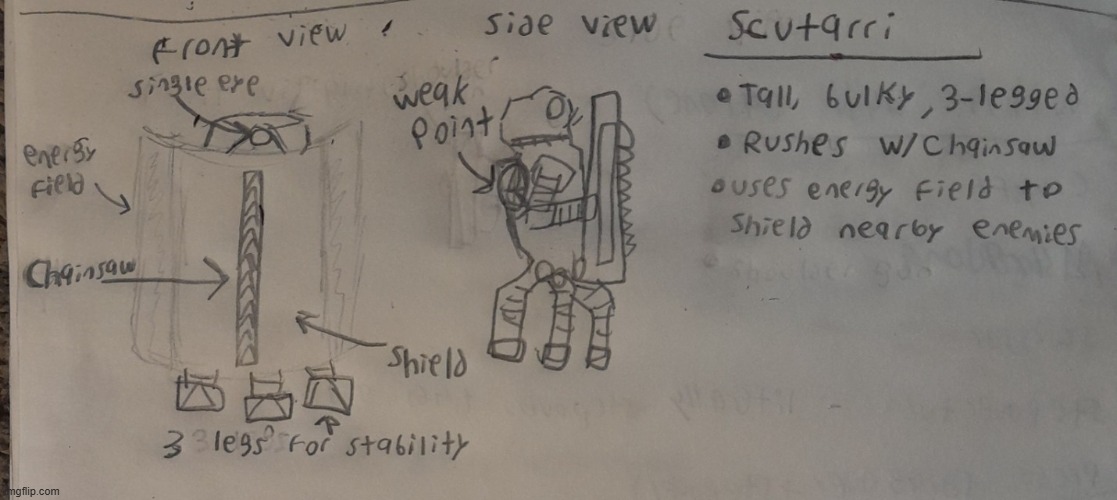 Front view
single eye
energy
field
Chainsaw
shield
3 legs for stability
side view
weak
point
Scutarri
• Tall, bulky, 3-legged
• Rushes w/Chainsaw
• uses energy field to
shield nearby enemies
imgflip.com